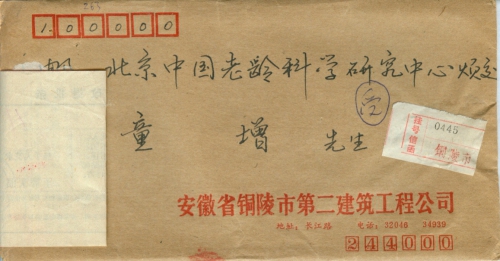 100000
邮 北京中国老龄科学研究中心烦交
童增先生
安徽省铜陵市第二建筑工程公司
地址:长江路 电话:32046 34939
244000
挂号信函
0445
铜陵市